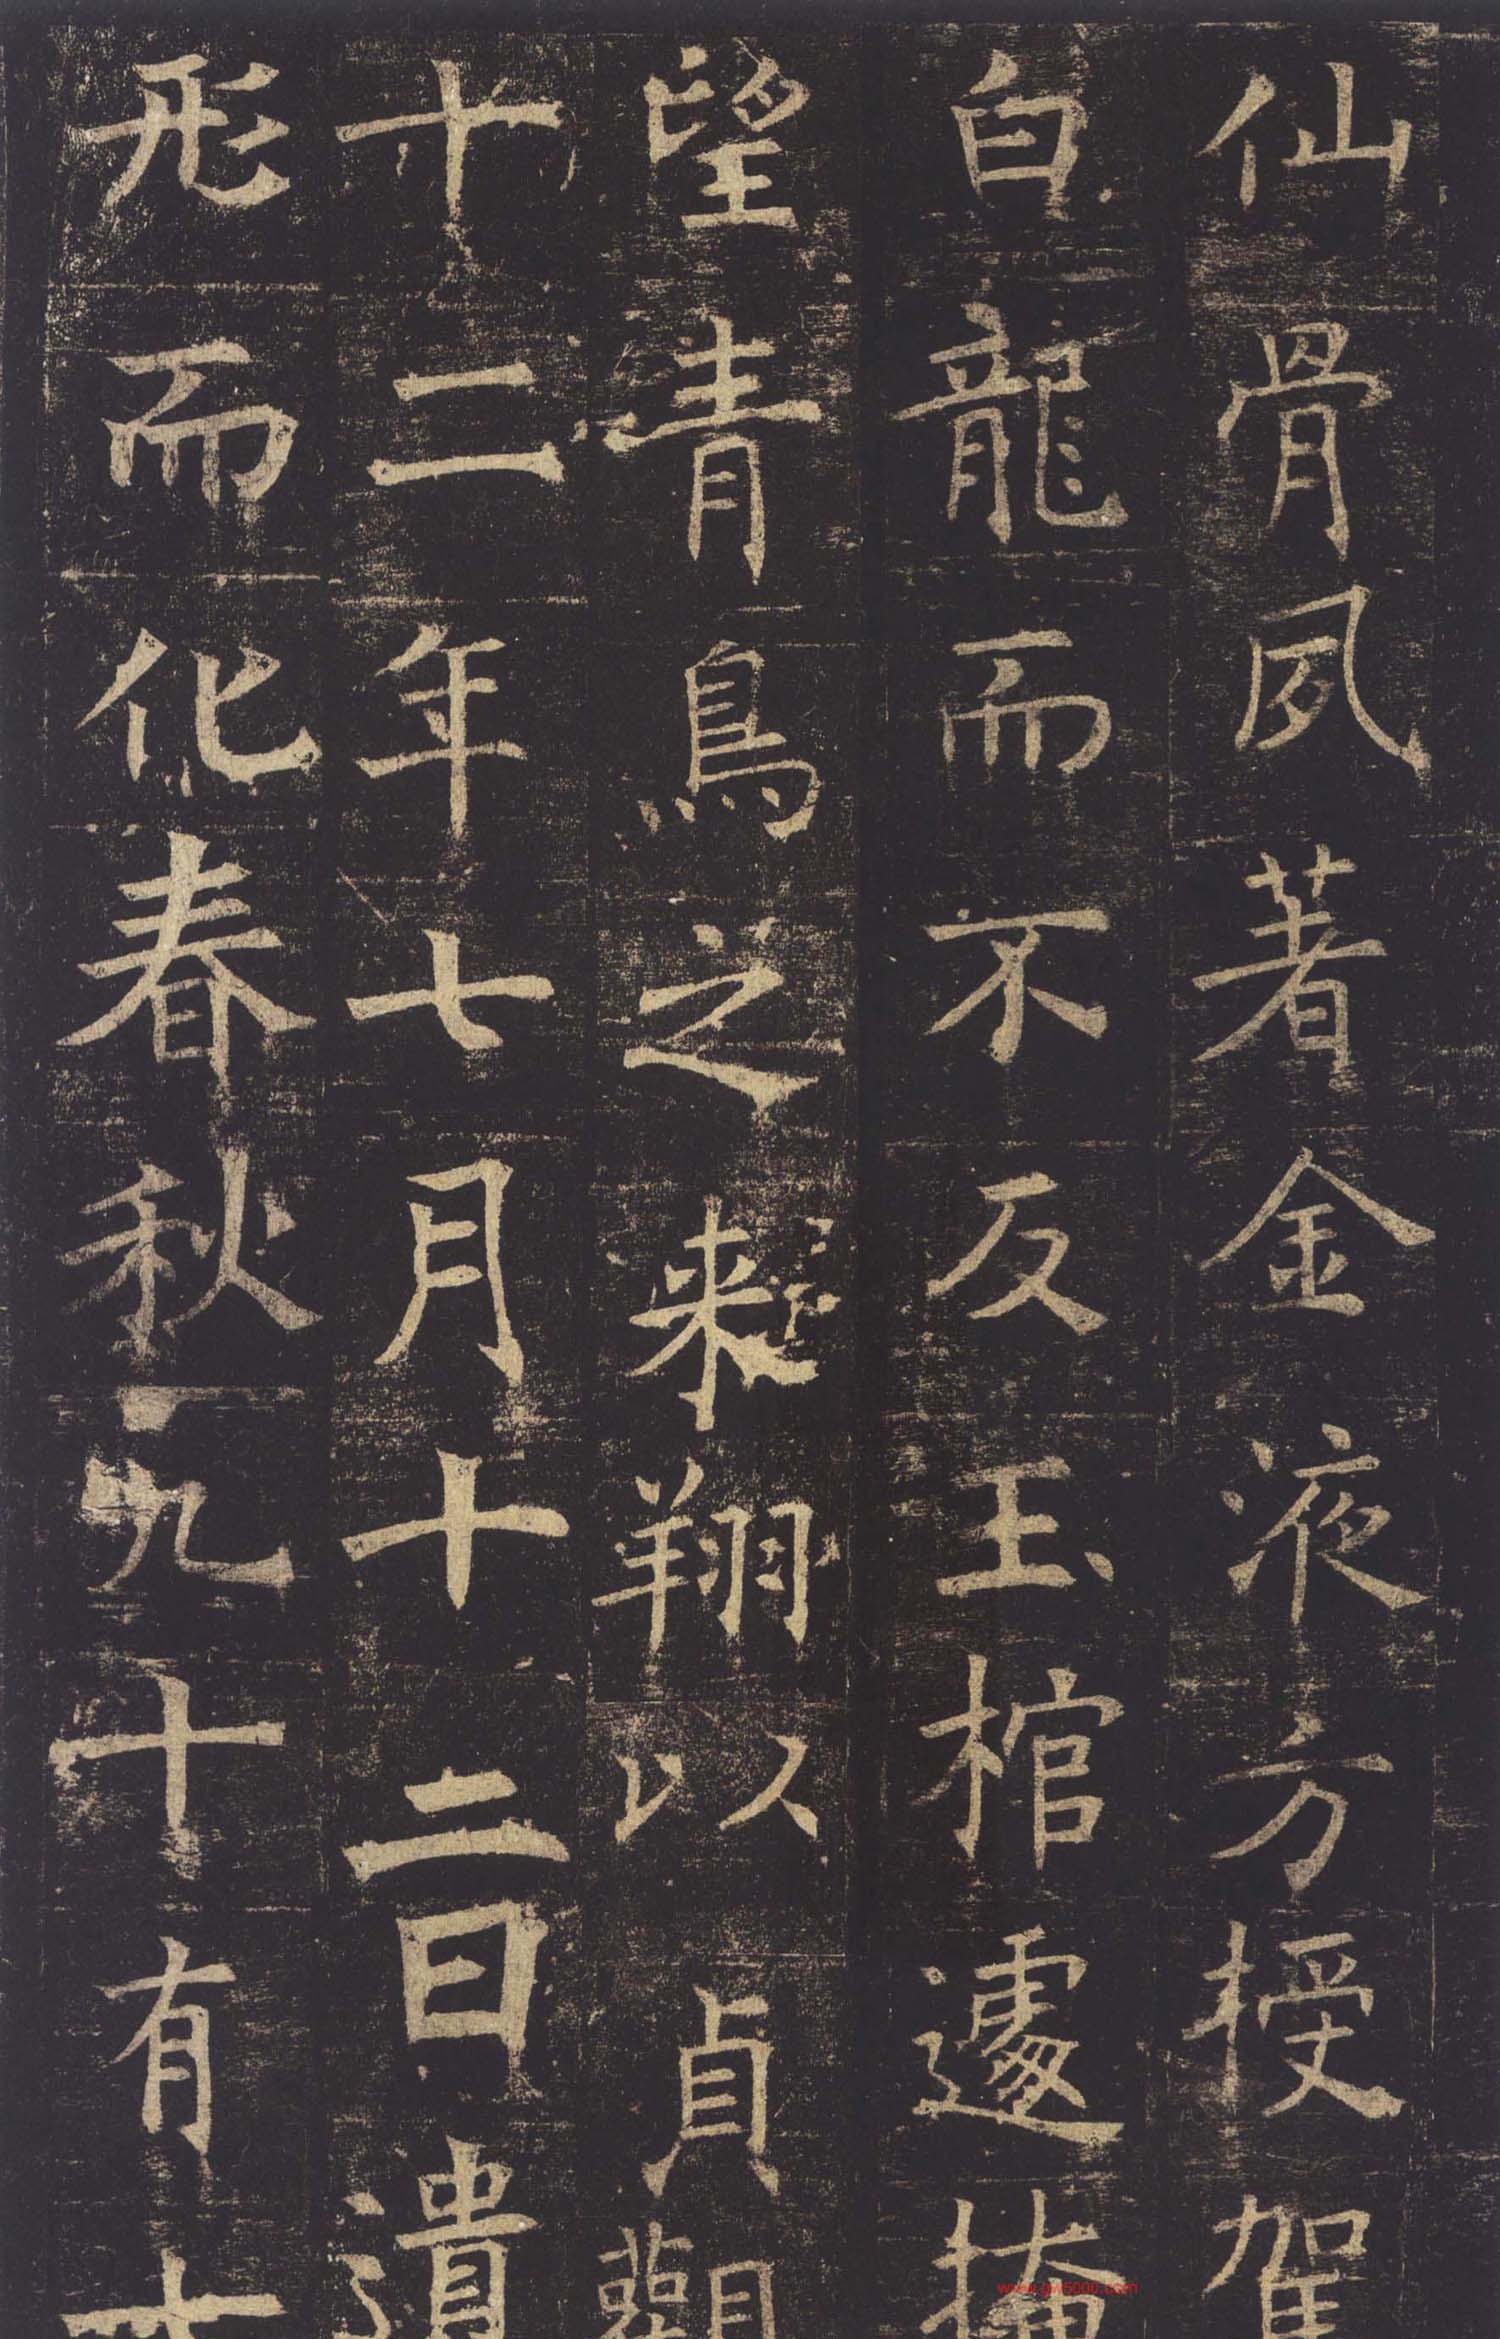 仙骨夙著金液方授駕
白龍而不反玉棺遽掩
望青鳥之来翔以貞觀
十二年七月十二日遺
形而化春秋九十有七
www.gw5000.com